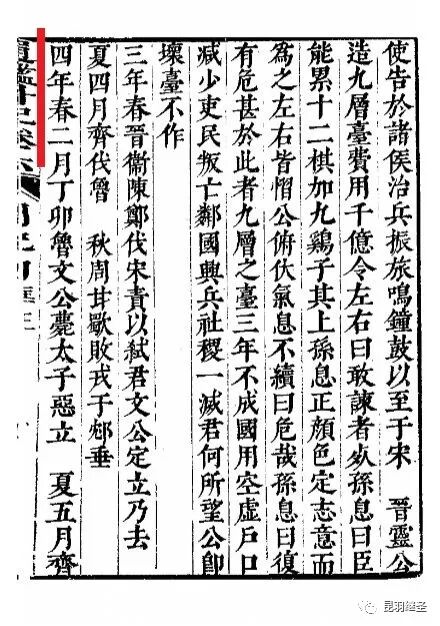 使告於諸侯治兵振旅鳴鐘鼓以至于宋　晉靈公
造九層臺費用千億令左右曰敢諫者㱙孫息曰臣
能累十二棋加九鷄子其上孫息正顏色定志意而
為之左右皆慴公俯伏氣息不續曰危哉孫息曰復
有危甚於此者九層之臺三年不成國用空虛戶口
減少吏民叛亡鄰國興兵社稷一滅君何所望公卽
壞臺不作
三年春晉衞陳鄭伐宋責以弒君文公定立乃去
夏四月齊伐魯　秋周甘歜敗戎于邥垂
四年春二月丁卯魯文公薨太子惡立　夏五月齊
昆羽继圣